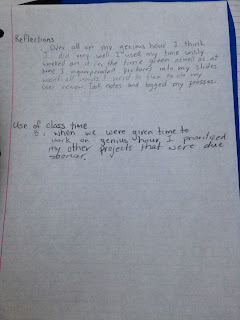 Reflections
Over all on my genious hour I think
I did very well. I used my time wisly
worked on it in the time given aswell as at
home I incorporated pictures into my slides
over reason took notes and logged my prosses.
Use of class time
8: when we were given time to
work on genius hour I priorized
my other projects that were due
sooner.